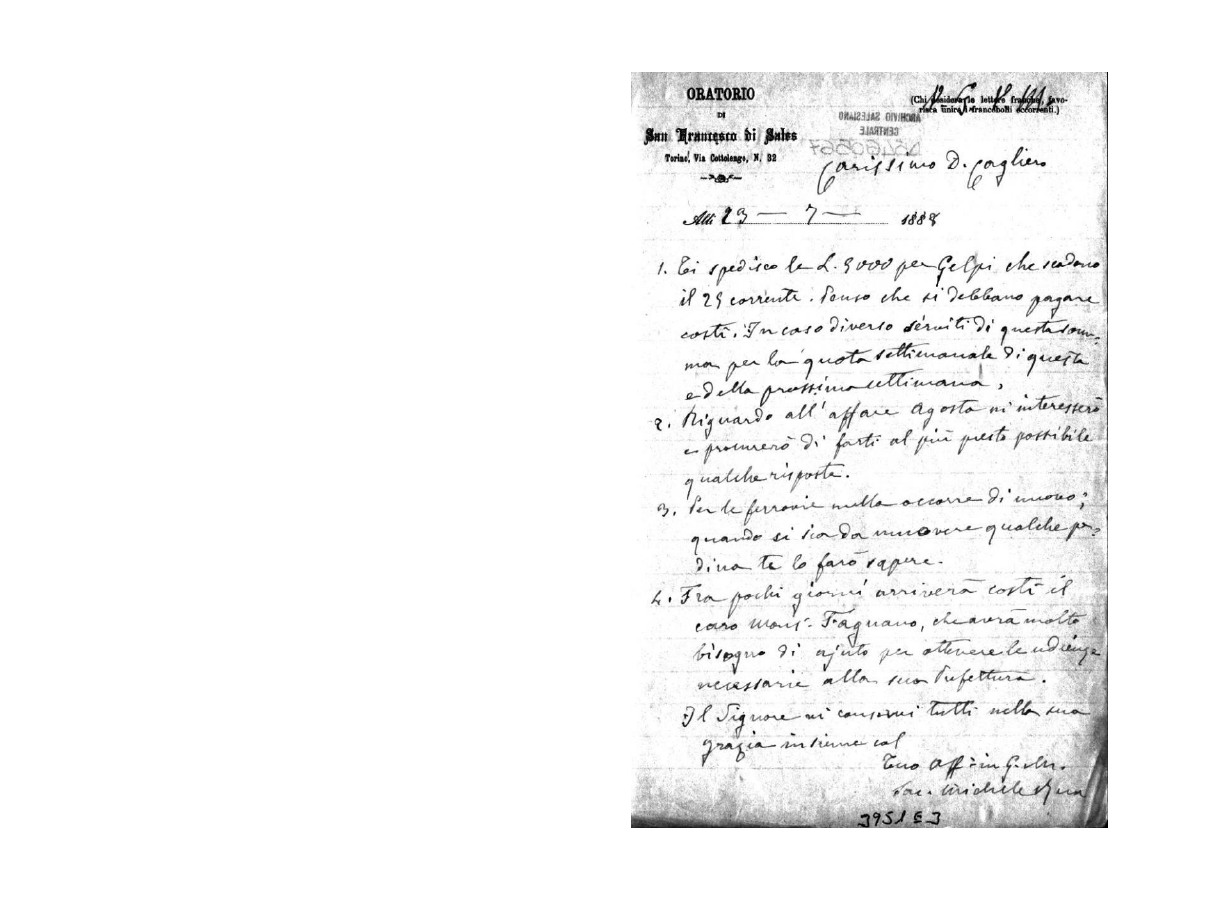 ORATORIO
DI
San Francesco di Sales
Torino, Via Cottolengo, N. 32
(Chi desidera le lettere franche, favo-
risca unire i francobolli occorrenti.)
ARCHIVIO SALESIANO
CENTRALE
Carissimo D. Cagliero
Alli 23 — 7 — 1888
1. Ti spedisco le L. 5000 per Gelpi che scadono
il 25 corrente. Penso che si debbano pagare
costì. In caso diverso serviti di questa som-
ma per la quota settimanale di questa
e della prossima settimana.
2. Riguardo all'affare Agosta mi interesserò
e procurerò di farti al più presto possibile
qualche risposta.
3. Per le ferrovie nulla occorre di nuovo;
quando si sia da muovere qualche pe-
dina te lo farò sapere.
4. Fra pochi giorni arriverà costì il
caro Mons. Fagnano, che avrà molto
bisogno di ajuto per ottenere le udienze
necessarie alla sua Prefettura.
Il Signore ci conservi tutti nella sua
grazia insieme col
Tuo Aff. in G. e M.
Sac. Michele Rua
3951 E 3